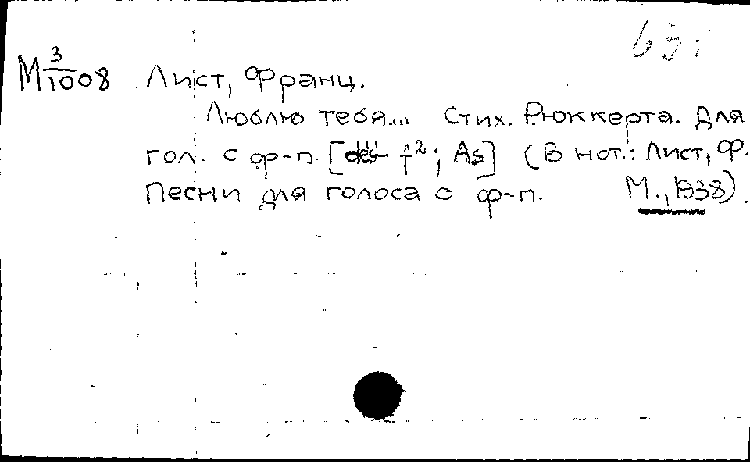 М 3/1008 Лист, Франц.
Люблю тебя... Стих. Рюккерта. Для
гол. с ф-п. [f²; As] (В нот.: Лист, Ф.
Песни для голоса с ф-п. М., 1938).